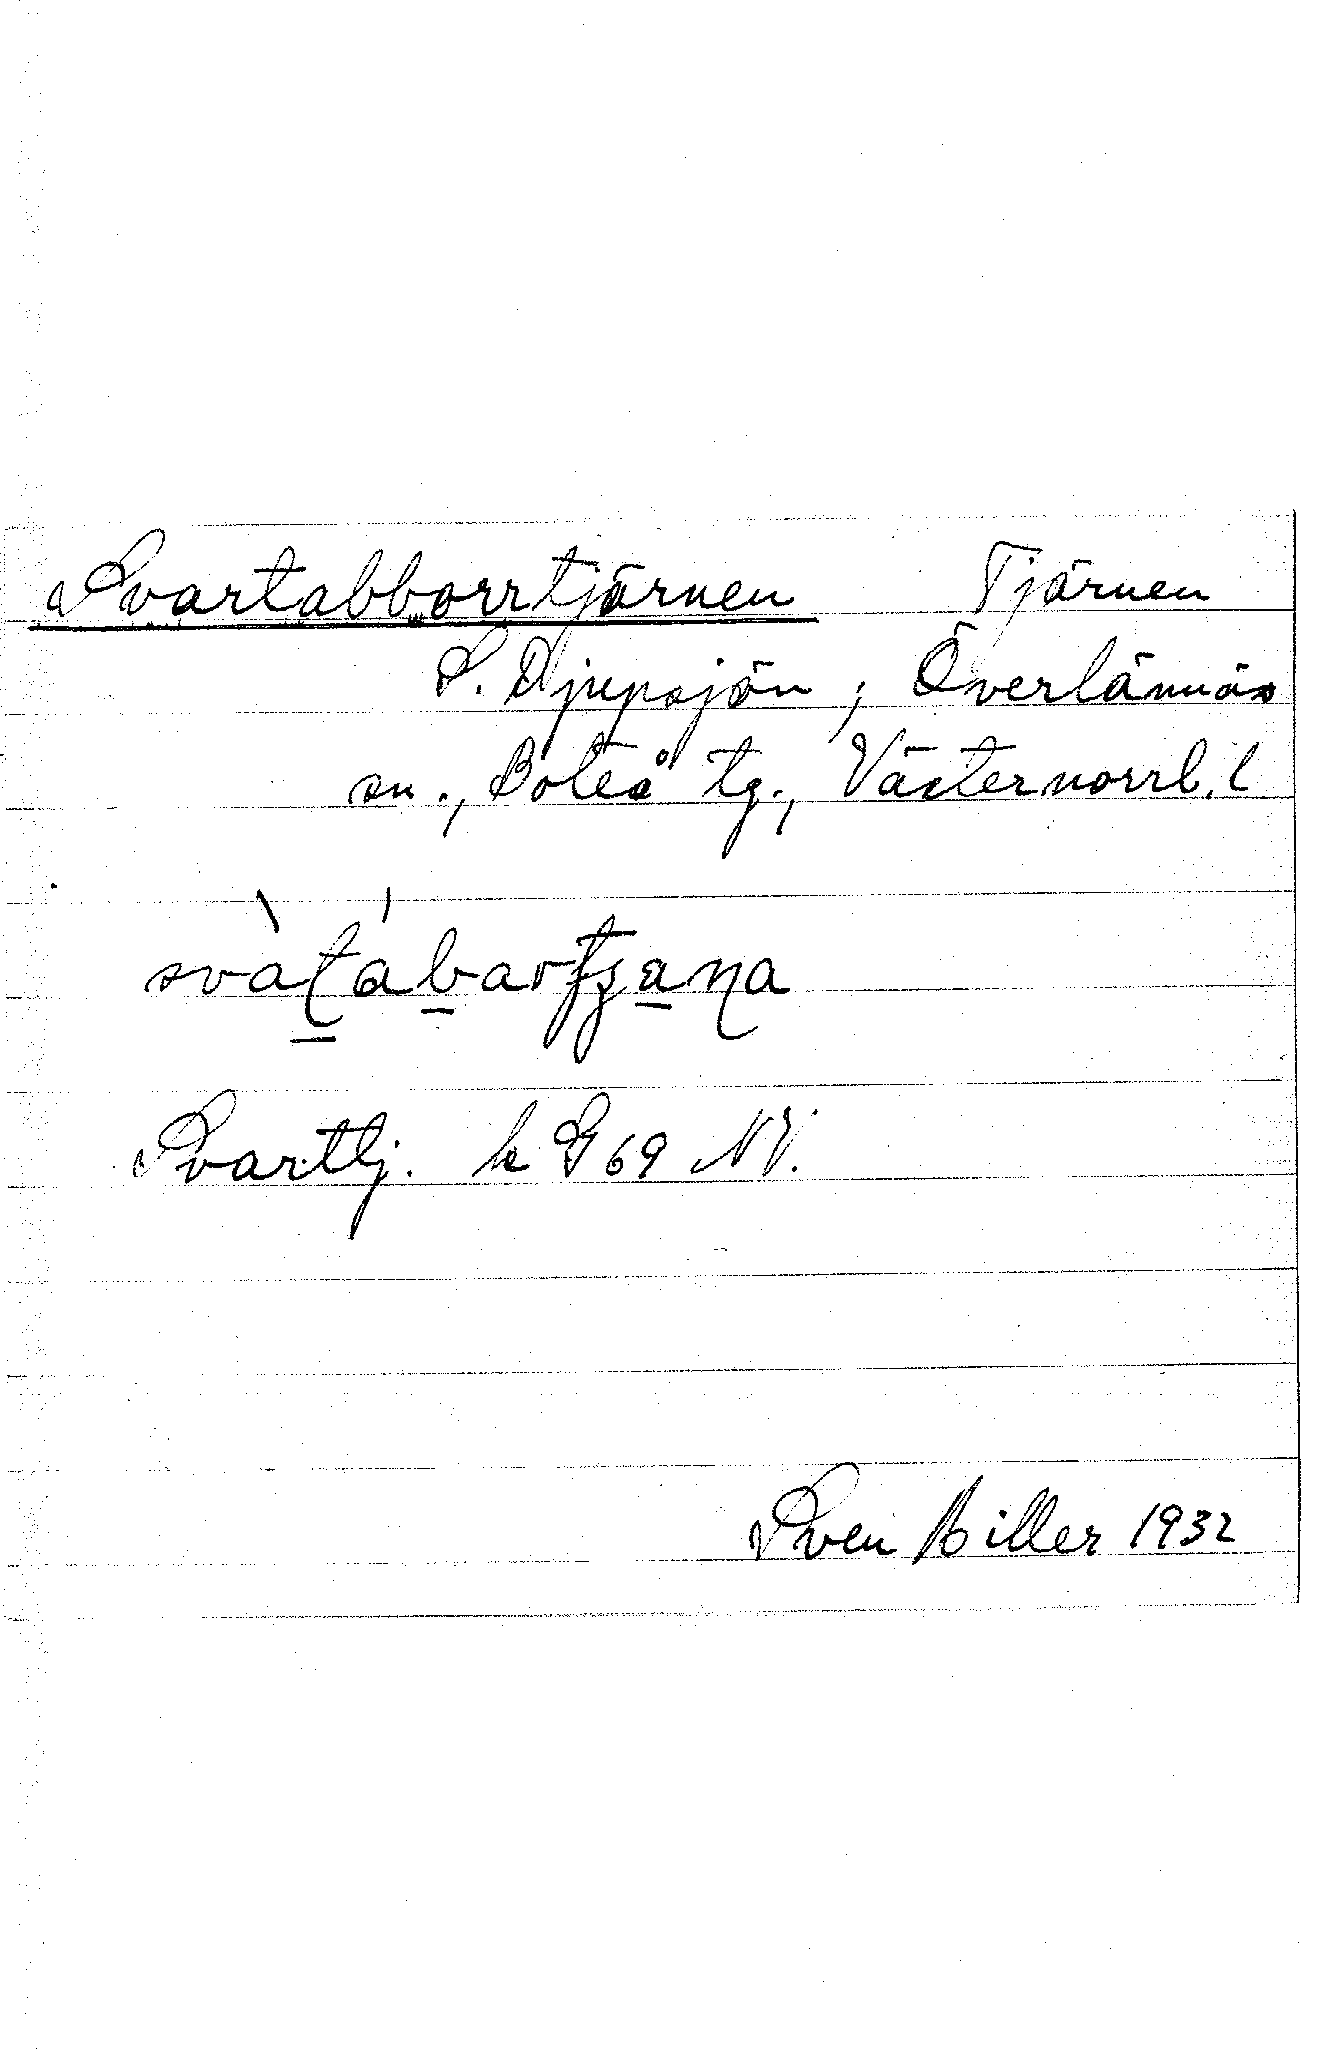 Svartabborrtjärnen Tjärnen
S. Djupsjön; Överlännäs
sn., Boteå tg., Västernorrl. l
svàtábartʂana
Svarttj. k G 69 NV.
Sven Biller 1932